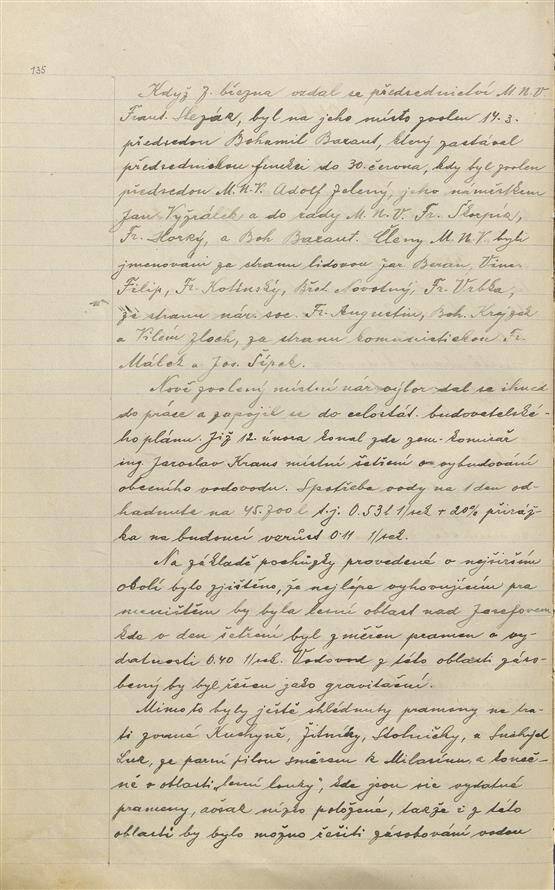 135
Když 7. března vzdal se předsednictví M.N.V.
Frant. Slezák, byl na jeho místo zvolen 14.3.
předsedou Bohumil Bazant, který zastával
předsednickou funkci do 30. června, kdy byl zvolen
předsedou M.N.V. Adolf Zelený, jeho náměstkem
Jan Vyzrálek a do rady M.N.V. Fr. Škorpík,
Fr. Horký, a Boh Bazant. Členy M.N.V. byli
jmenováni za stranu lidovou Jar Beran, Vinc
Filip, Fr. Kotinský, Břet Novotný, Fr. Vrbka,
ze stranu nár. soc. Fr. Augustin, Boh. Krejzek
a Vilém Zloch, za stranu komunistickou Fr.
Málek a Jos. Šípek.
Nově zvolený místní nár výbor dal se ihned
do práce a zapojil se do celostát. budovatelské-
ho plánu. Již 12. února konal zde zem. komisař
ing. Jaroslav Kraus místní šetření o vybudování
obecního vodovodu. Spotřeba vody na 1 den od-
hadnuta na 45.700 l t.j. 0.53 l 1/sek + 20% přiráž-
ka na budoucí vzrůst 0.11 1/sek.
Na základě pochůzky provedené v nejširším
okolí bylo zjištěno, že nejlépe vyhovujícím pra
meništěm by byla lesní oblast nad Josefovem
kde v den šetření byl změřen pramen o vy-
datnosti 0.40 1/sek. Vodovod z této oblasti záso-
bený by byl řešen jako gravitační.
Mimo to byly ještě shlédnuty prameny na tra-
ti zvané Kuchyně, Žitníky, Stolničky, a Suchých
Luk, ze parní pilou směrem k Milotínu, a koneč-
ně v oblasti "lesní louky", kde jsou sic vydatné
prameny, avšak nízko položené, takže i z této
oblasti by bylo možno řešiti zásobování vodou